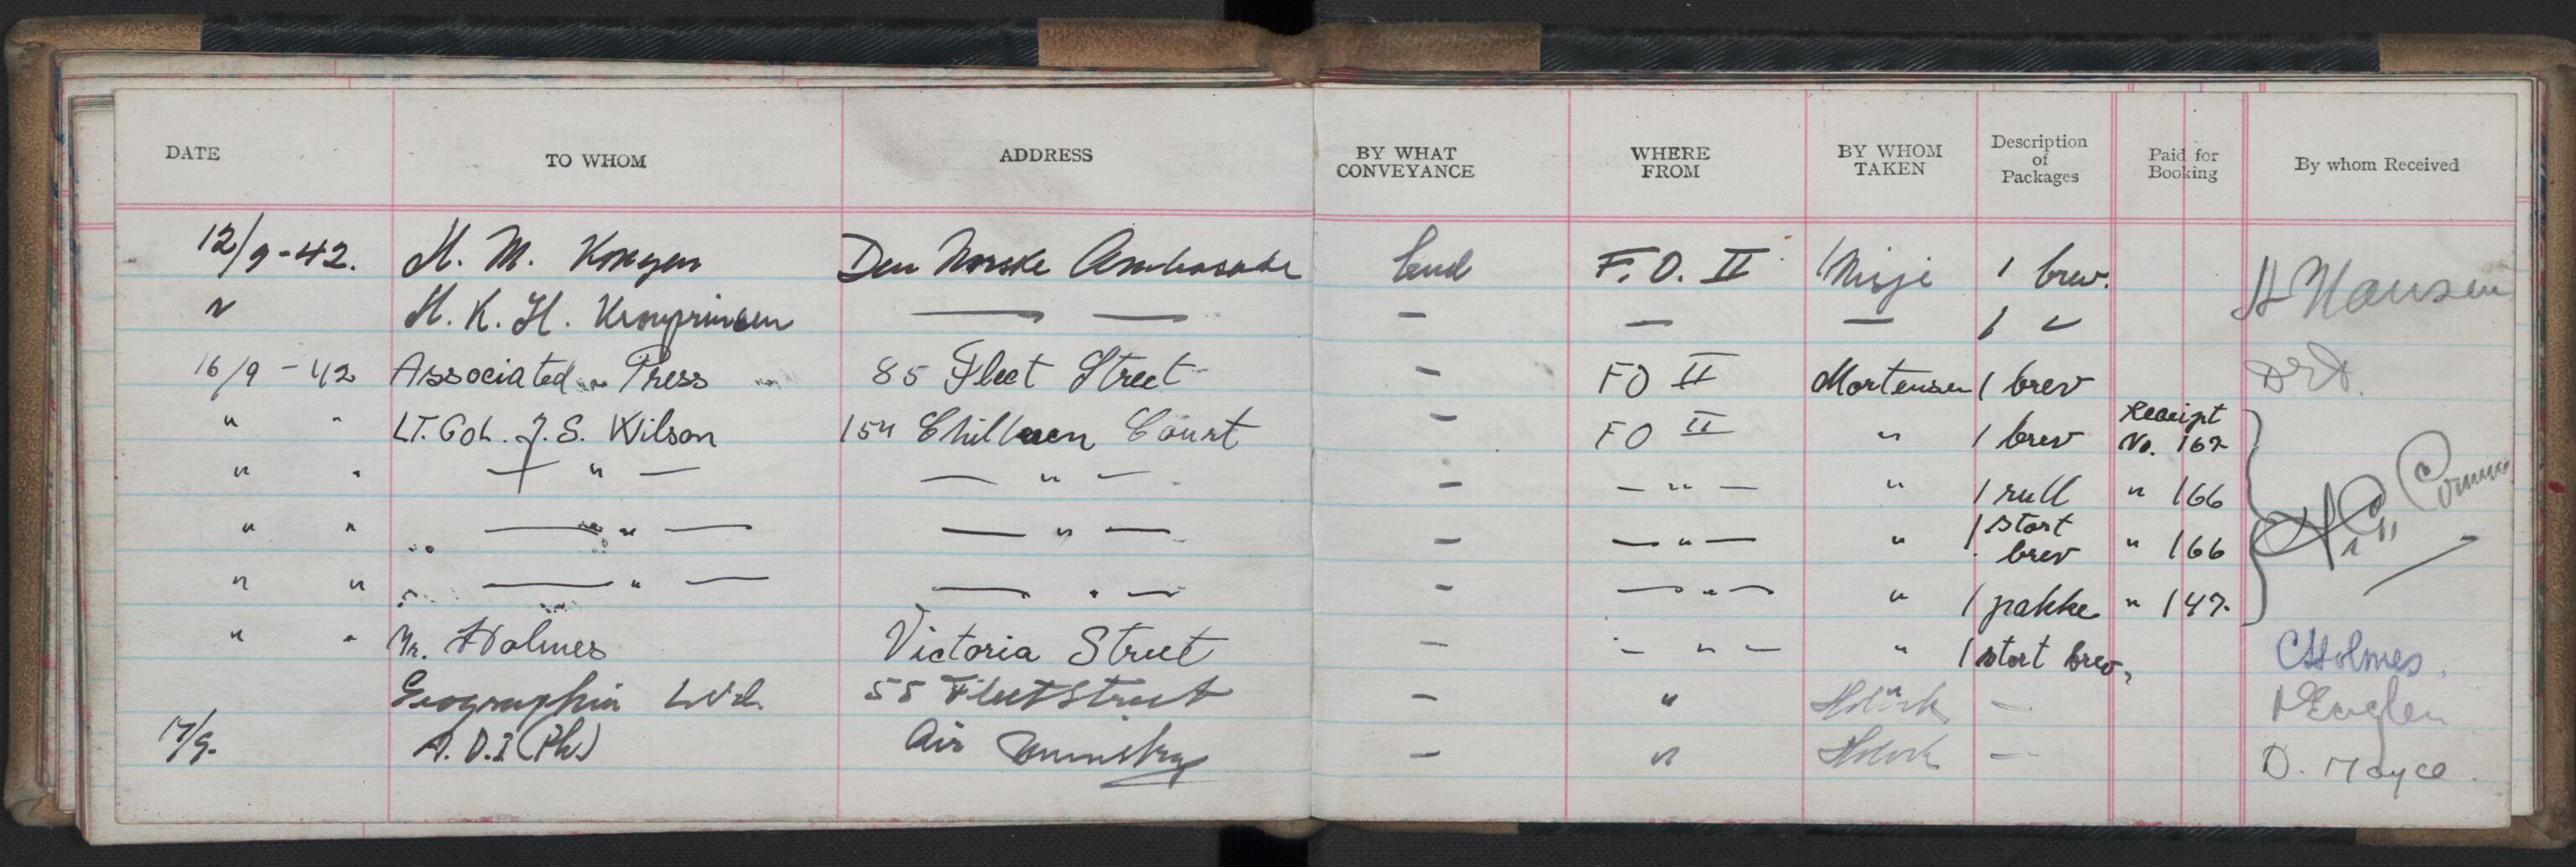 DATE TO WHOM ADDRESS BY WHAT CONVEYANCE WHERE FROM BY WHOM TAKEN Description of Packages Paid for Booking By whom Received
12/9-42. H. M. Kongen Den Norske Ambassade bud F.O. II Misje 1 brev. H Hansen
" H. K. H. Kronprinsen — — — — — 1 "
16/9-42 Associated Press 85 Fleet Street - FO II Mortensen 1 brev
" " LT. Col. J. S. Wilson 154 Chiltern Court - FO II " 1 brev Receipt No. 167
" " — " — — " — - — " — " 1 rull " 166
" " — " — — " — - — " — " 1 stort brev " 166
" " — " — — " — - — " — " 1 pakke " 147.
" " Mr. Holmes Victoria Street - - " - " 1 stort brev, C Holmes.
Geographia Ltd. 55 Fleet Street - " —
17/9. A.D.I (Ph) Air Ministry - " — D. Mayce.